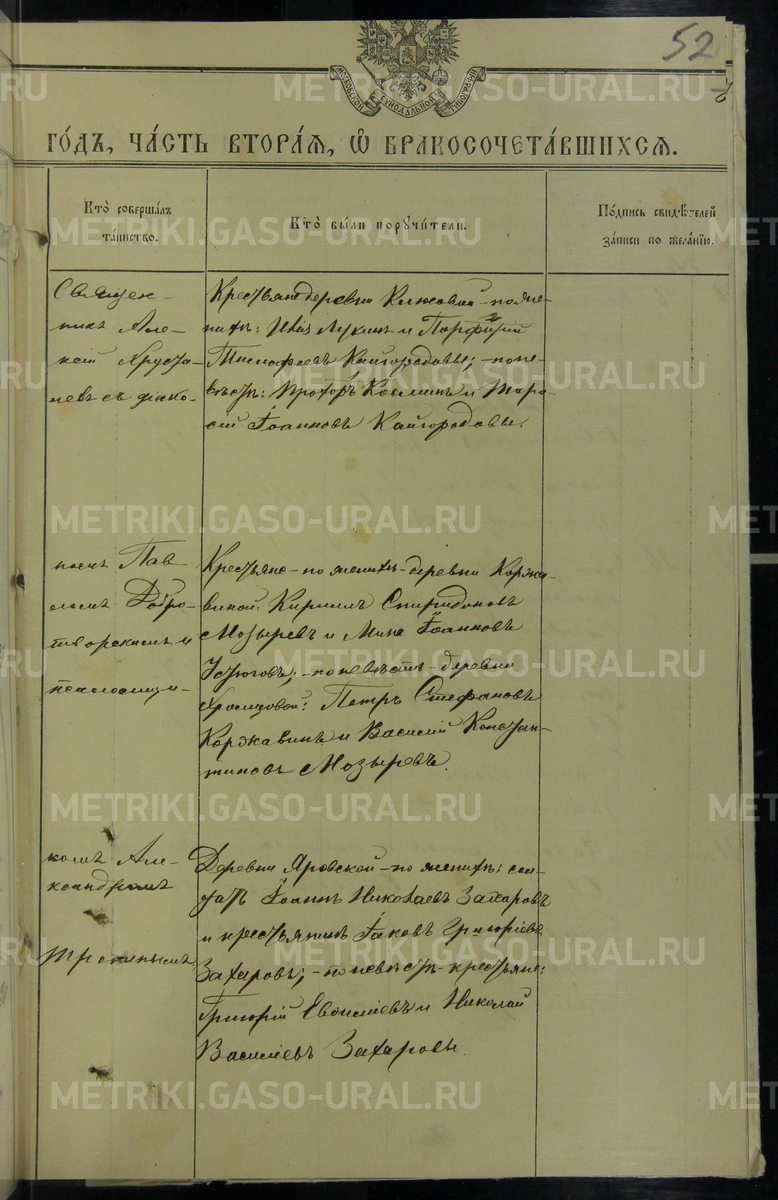 52
МОСКОВСКОЙ СѴНОДАЛЬНОЙ ТИПОГРАФІИ
ГО́ДЪ, ЧА́СТЬ ВТОРА́Я, Ѽ БРАКОСОЧЕТА́ВШИХСЯ.
Кто̀ соверша́лъ
та́инство.
Кто̀ бы́ли порꙋчи́тели.
По́дпись свидѣ́телей
за́писи по жела́нїю.
Священ-
никъ Але-
ксій Хруста-
левъ съ діако-
Крестьяне деревни по же-
нихѣ: Іванъ Лукинъ и Порфирій
Тимофеевъ Кайгородовы; - по не-
вѣстѣ: Прохоръ Козминъ и Тара-
сій Іоанновъ Кайгородовы.
номъ Пав-
ломъ Добро-
творскимъ и
псаломщи-
Крестьяне - по женихѣ - деревни Коржа-
виной: Кириллъ Спиридоновъ
Мозыревъ и Мина Іоанновъ
Устюговъ; - по невѣстѣ - деревни
Храмцовой: Петръ Стефановъ
Коржавинъ и Василій Констан-
тиновъ Мозыревъ.
комъ Але-
ксандромъ
Трониныъ.
Деревни Яровской - по женихѣ: сол-
датъ Іоаннъ Николаевъ Захаровъ
и крестьянинъ Іаковъ Григоріевъ
Захаровъ; - по невѣстѣ - крестьяне:
Григорій Евсиліевъ и Николай
Василіевъ Захаровы.
METRIKI.GASO-URAL.RU